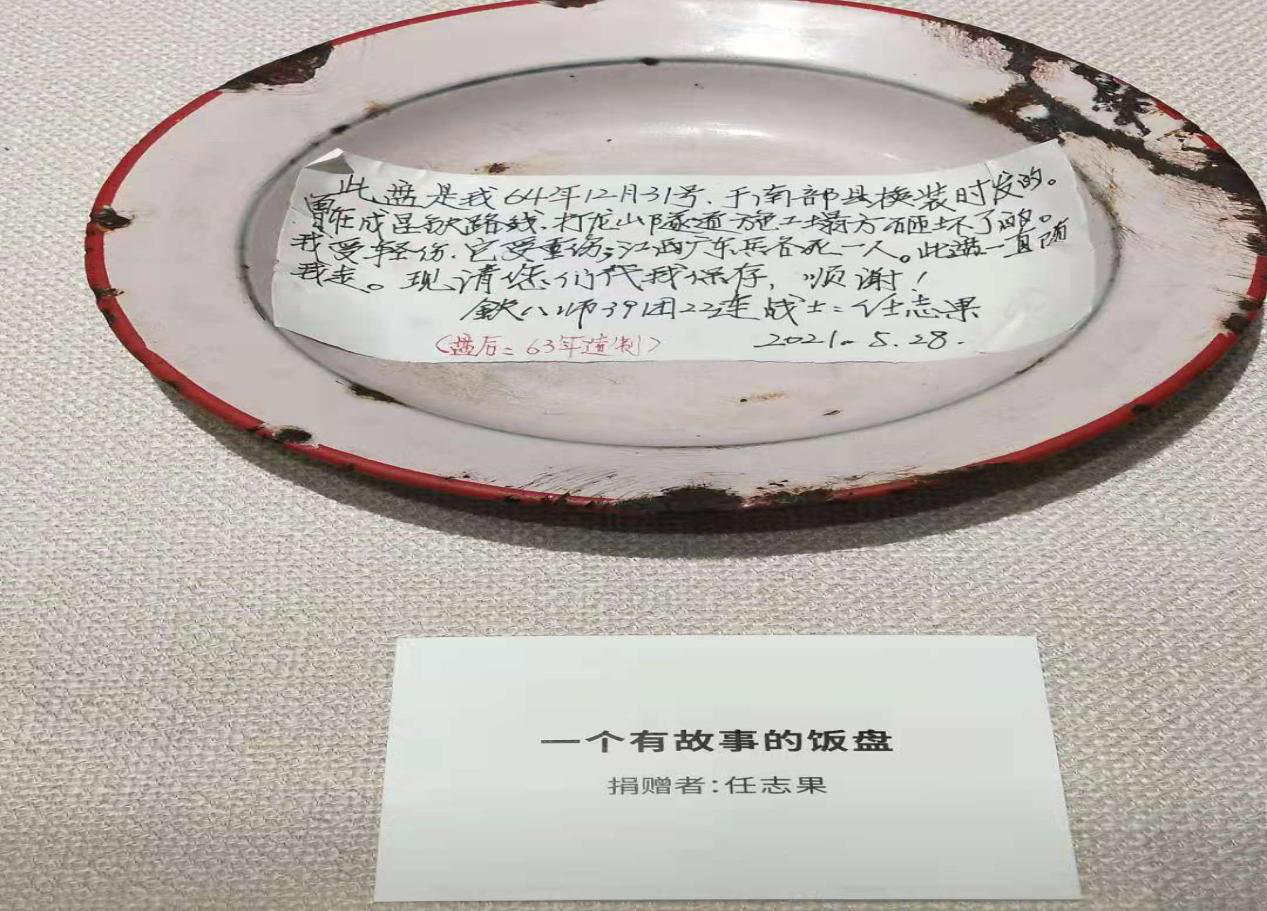 此盘是我64年12月31号.于南部县换装时发的。
曾在成昆铁路线.打龙山隧道施工塌方砸坏了的。
我受轻伤.它受重伤;江西广东兵各死一人。此盘一直随
我走。现请您们代我保存,顺谢!
铁八师39团22连战士:任志果
(盘后:63年造制) 2021.5.28.
一个有故事的饭盘
捐赠者:任志果